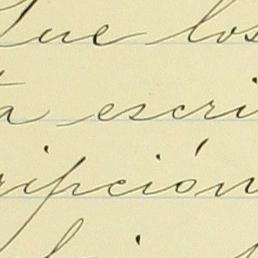 Que los
ta escri
ripción